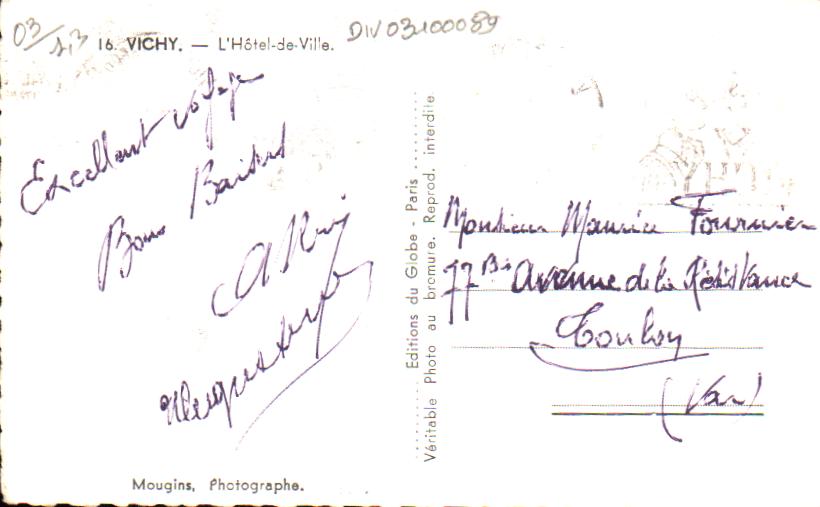 03/
DIV03100089
16. VICHY. — L'Hôtel-de-Ville.
Excellent voyage
Bons Baisers
Editions du Globe - Paris
Véritable Photo au bromure. Reprod. interdite
Monsieur Maurice Fournier
77 Bis Avenue de la Résistance
Toulon
(Var)
Mougins, Photographe.